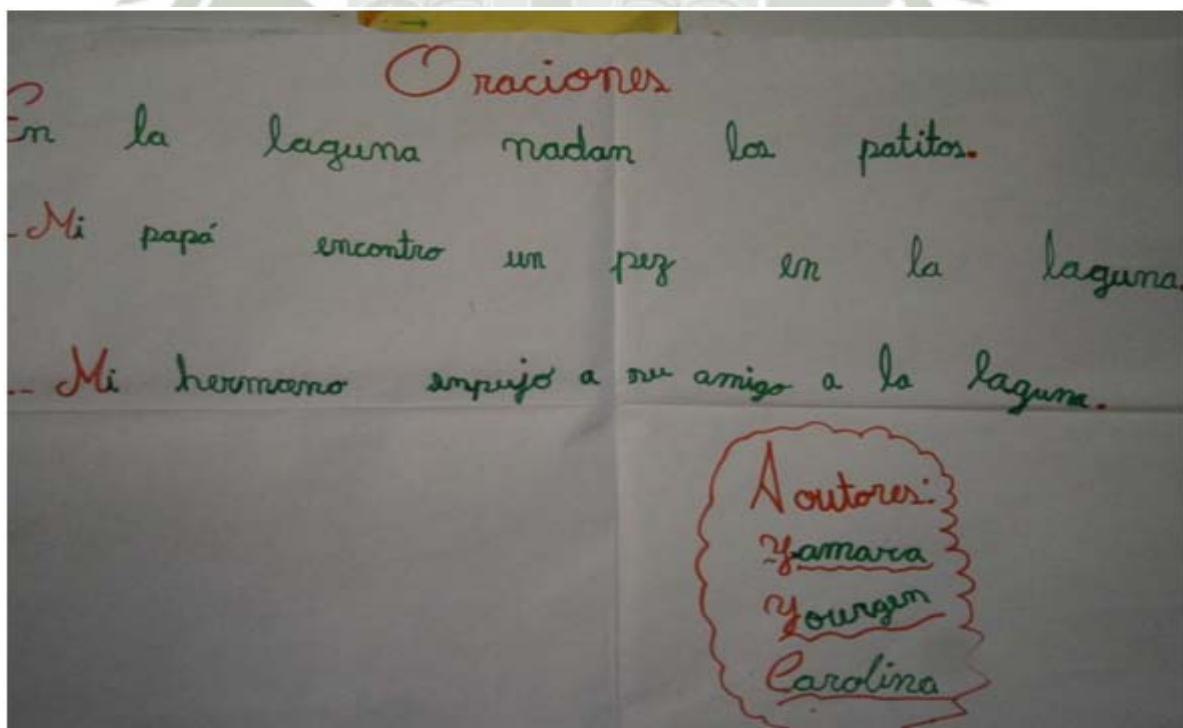 Oraciones
En la laguna nadan los patitos.
- Mi papá encontro un pez en la laguna.
-- Mi hermano empujó a su amigo a la laguna.
Aoutores:
Yamara
Yourgen
Carolina